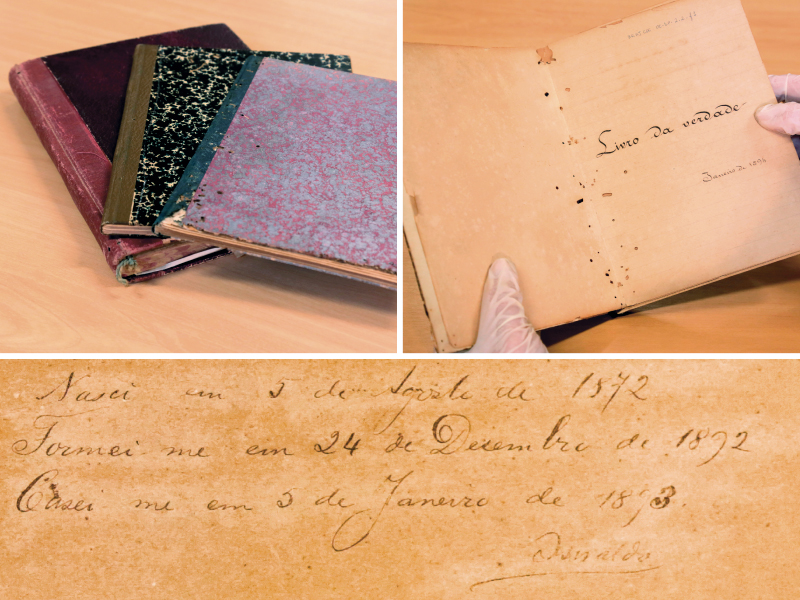 Livro da verdade
Janeiro de 1894
Nasci em 5 de Agosto de 1872
Formei me em 24 de Desembro de 1892
Casei me em 5 de Janeiro de 1893.
Oswaldo